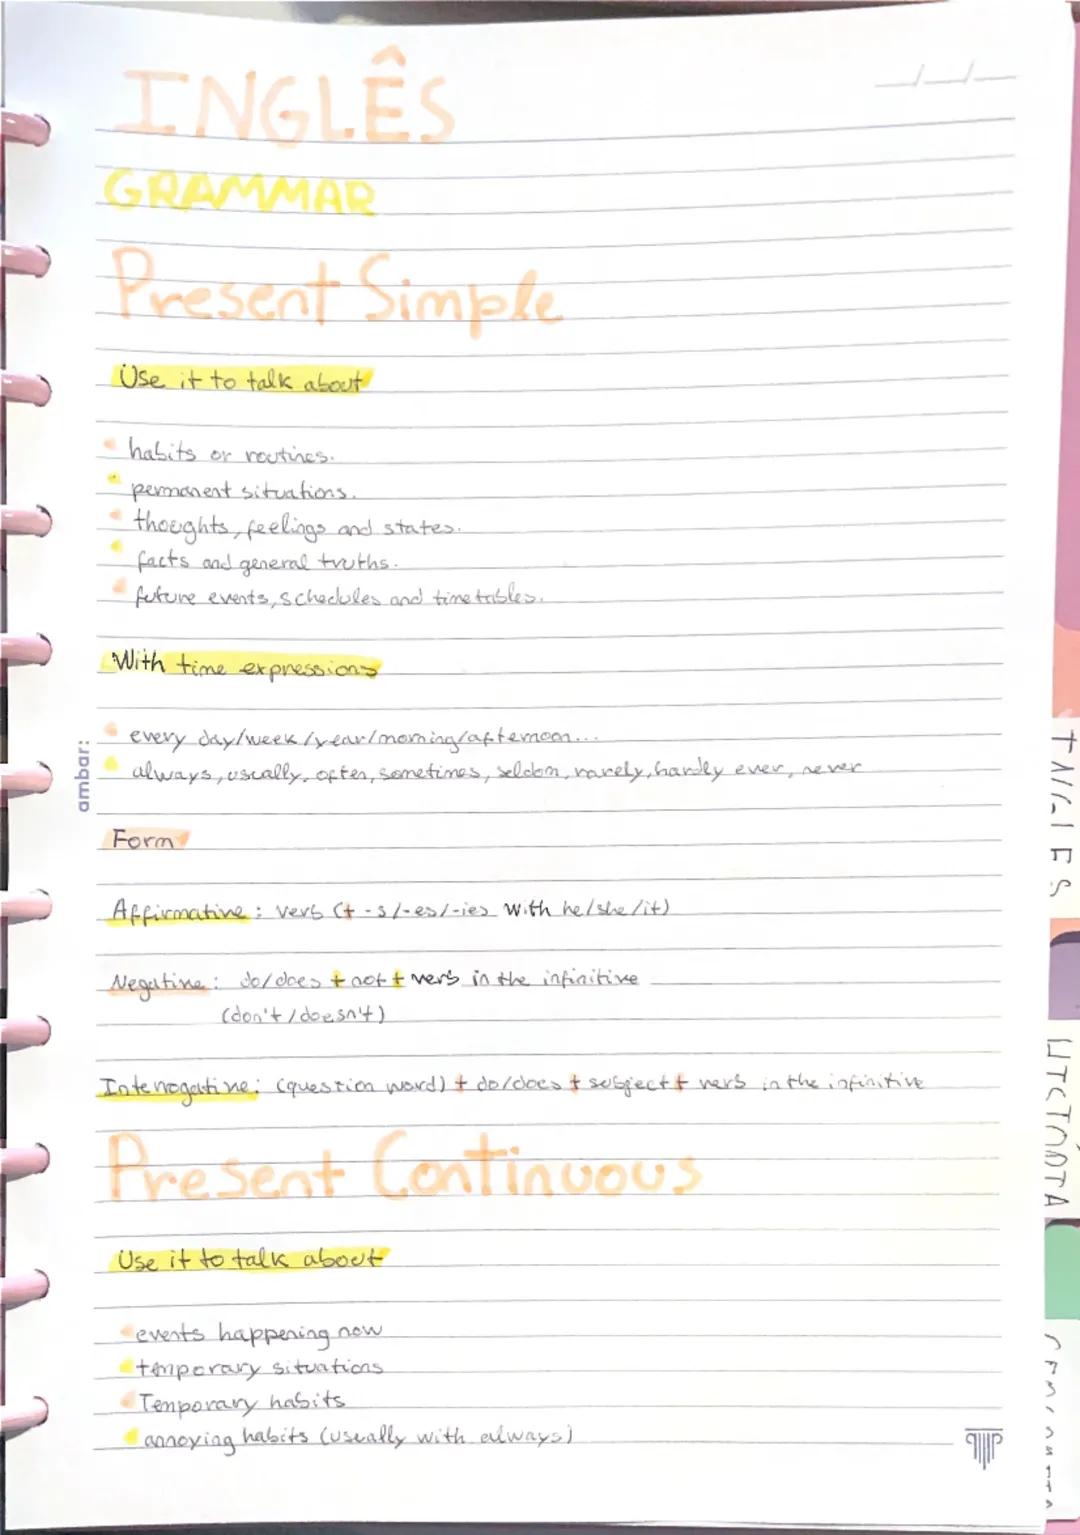 INGLÊS
GRAMMAR
Present Simple
Use it to talk about
habits or routines.
permanent situations.
thoughts, feelings and states.
facts and general truths.
future events, schedules and timetables.
With time expressions
every day/week/year/morning/afternoon...
always, usually, often, sometimes, seldom, rarely, hardly ever, never
Form
Affirmative: verb (+ -s/-es/-ies with he/she/it)
Negative: do/does + not + verb in the infinitive
(don't/doesn't)
Interrogative: (question word) + do/does + subject + verb in the infinitive
Present Continuous
Use it to talk about
events happening now
temporary situations
Temporary habits
annoying habits (usually with always)
ambar: